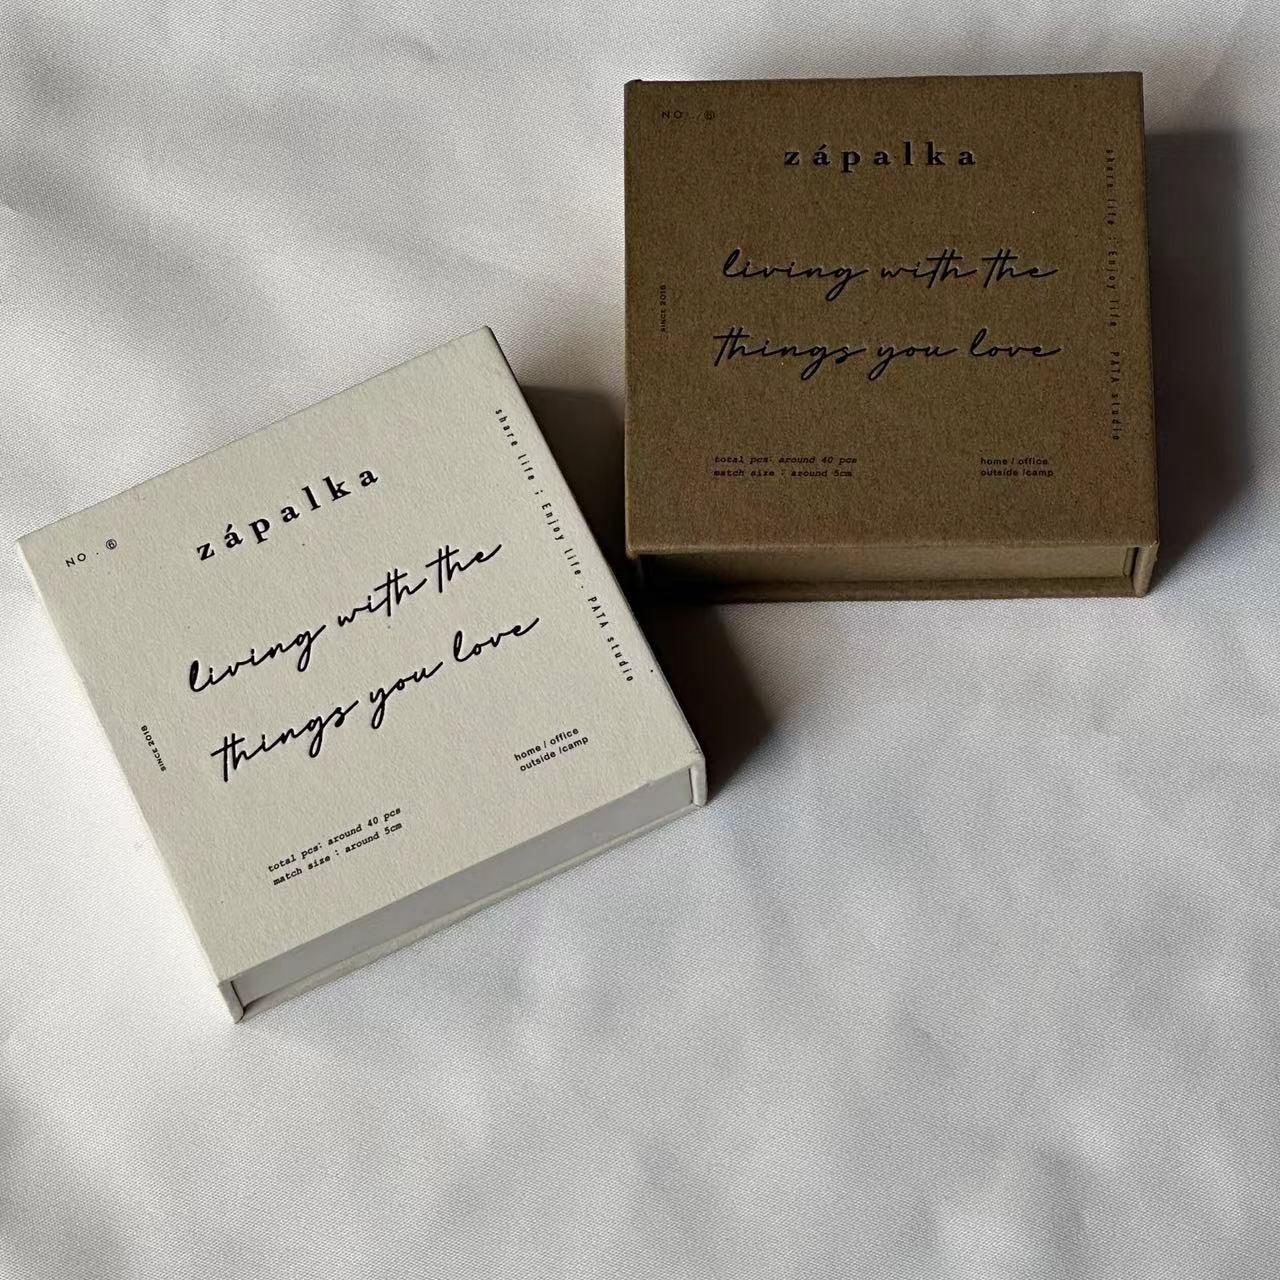 NO . ⑥
zápalka
living with the
things you love
SINCE 2018
share life ; Enjoy life . PATA studio
total pcs: around 40 pcs
match size : around 5cm
home / office
outside /camp
NO . ⑥
zápalka
living with the
things you love
SINCE 2018
share life ; Enjoy life . PATA studio
total pcs: around 40 pcs
match size : around 5cm
home / office
outside /camp